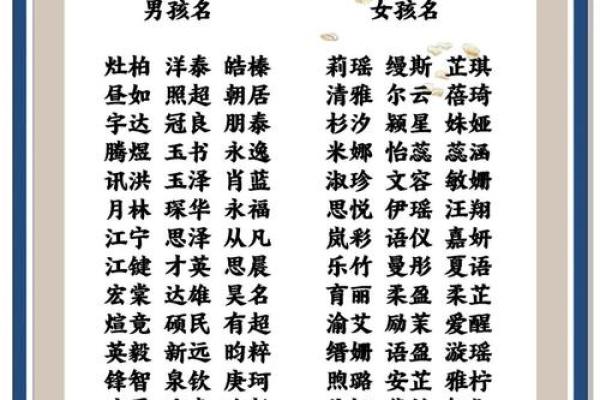 男孩名 女孩名
灶柏 洋泰 皓榛 莉瑶 缦斯 芷琪
昼如 照超 朝居 清雅 尔云 蓓琦
字达 冠良 朋泰 杉汐 颖星 姝娅
腾煜 玉书 永逸 米娜 怡蕊 蕊涵
讯洪 玉泽 肖蓝 淑珍 文容 敏姗
月林 琛华 永福 思悦 伊瑶 汪翔
江宁 思泽 从凡 岚彩 语仪 嘉妍
江键 才英 思晨 乐竹 曼彤 夏语
宏棠 达雄 昊名 育丽 柔盈 柔芷
煊竟 硕民 有超 渝艾 励茉 爱醒
英毅 新远 昀粹 缙姗 语盈 漩瑶
锋智 泉钦 庚珂 煦璐 安芷 雅柠